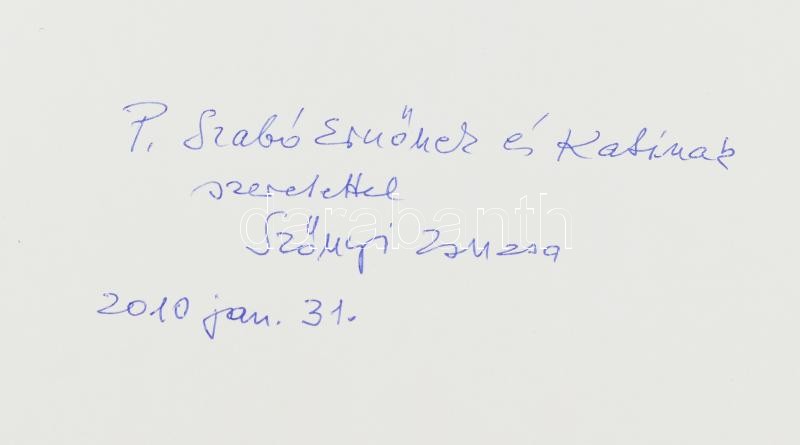 P. Szabó Ernőnek és Katinak
szeretettel
darabanth
Szőnyi Zsuzsa
2010 jan. 31.